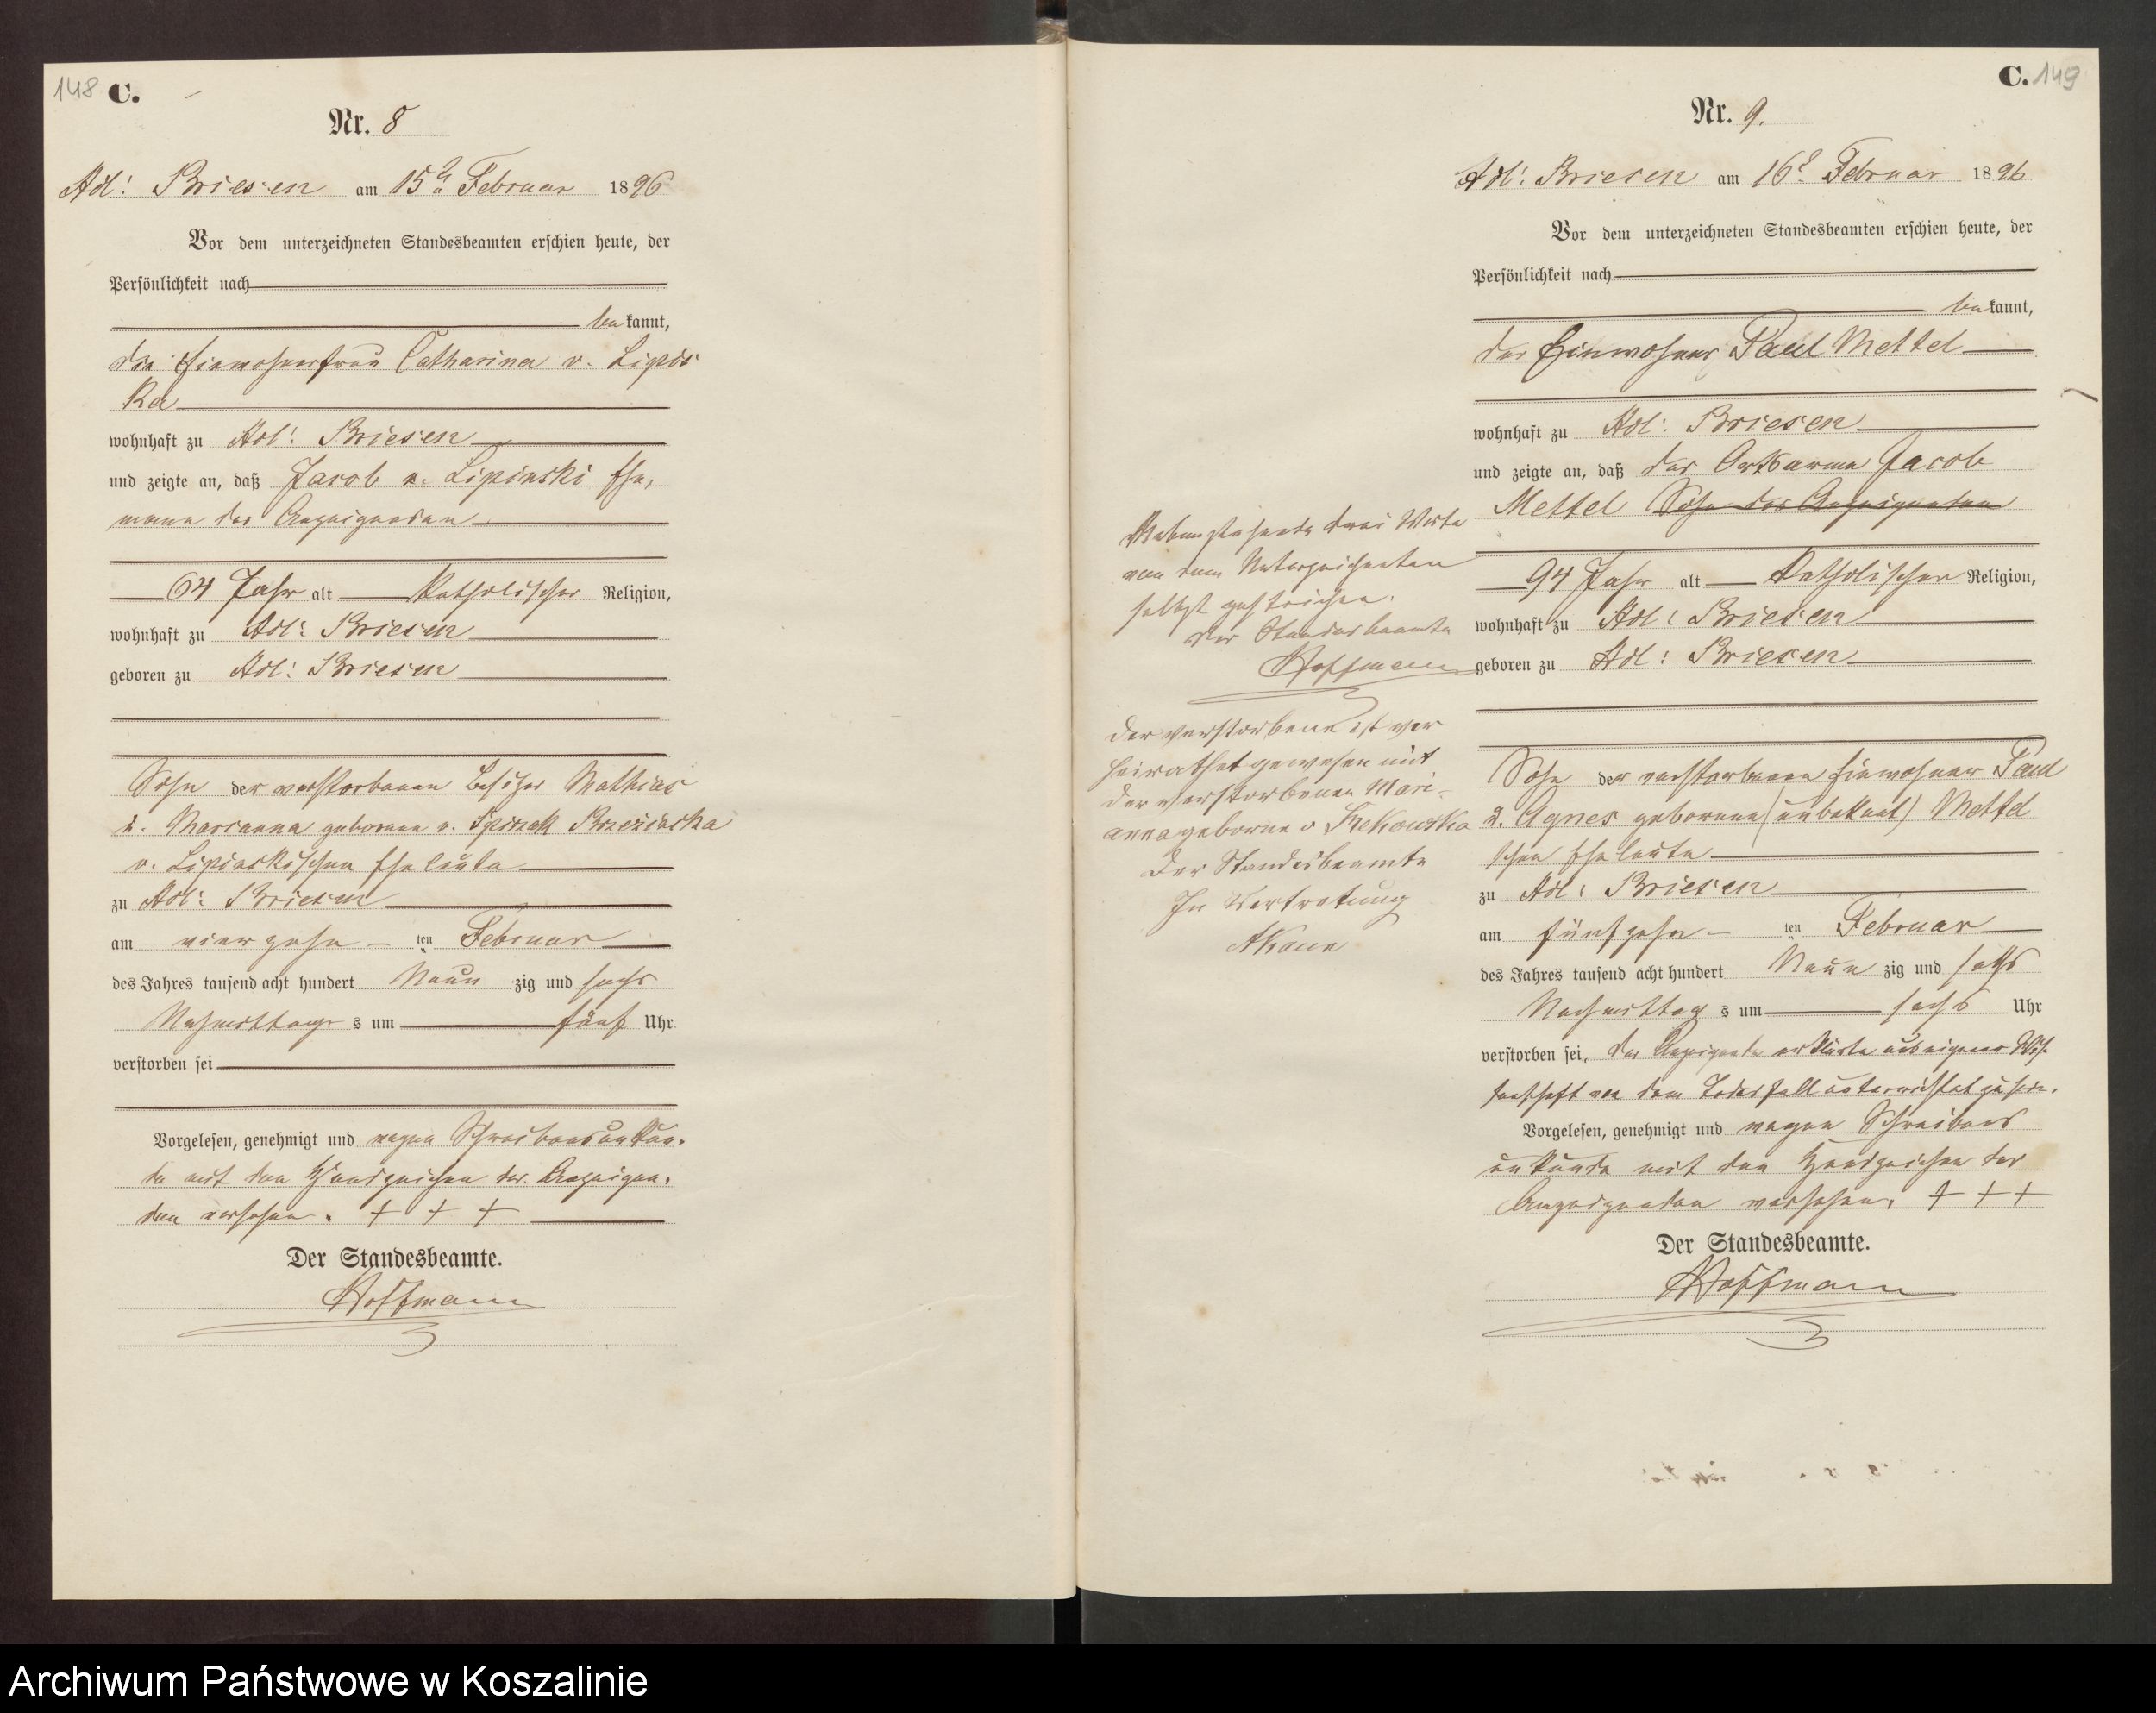 148 C.
Nr. 8
Adl: Briesen am 15ten Februar 1896
Vor dem unterzeichneten Standesbeamten erschien heute, der
Persönlichkeit nach
bekannt,
die Einwohnerfrau Catharina v. Lipins
ka
wohnhaft zu Adl: Briesen
und zeigte an, daß Jacob v. Lipinski Ehe,
mann der Anzeigenden
64 Jahr alt Katholischer Religion,
wohnhaft zu Adl: Briesen
geboren zu Adl: Briesen
Sohn der verstorbenen Besitzer Mathias
u. Marianna geborene v. Brzezinska
v. Lipinskischen Eheleute
zu Adl: Briesen
am vierzehn ten Februar
des Jahres tausend acht hundert Neun zig und sechs
Nachmittags um fünf Uhr
verstorben sei
Vorgelesen, genehmigt und wegen Schreibensunkun-
de mit den Handzeichen der Anzeigen-
den versehen. + + +
Der Standesbeamte.
Hoffmann
C. 149
Nr. 9.
Adl: Briesen am 16t Februar 1896
Vor dem unterzeichneten Standesbeamten erschien heute, der
Persönlichkeit nach
bekannt,
der Einwohner Paul Mettel
wohnhaft zu Adl: Briesen
und zeigte an, daß der Ortsarme Jacob
Mettel Sohn des Anzeigenden
94 Jahr alt Katholischer Religion,
wohnhaft zu Adl: Briesen
geboren zu Adl: Briesen
Sohn der verstorbenen Einwohner Paul
u. Agnes geborene (unbekant) Mettel
schen Eheleute
zu Adl: Briesen
am fünfzehn ten Februar
des Jahres tausend acht hundert Neun zig und sechs
Nachmittags um sechs Uhr
verstorben sei, der Anzeigende erklärte aus eigener Wis-
senschaft von dem Todesfall unterrichtet zu sein.
Vorgelesen, genehmigt und wegen Schreibens
unkunde mit den Handzeichen des
Anzeigenden versehen. + + +
Der Standesbeamte.
Hoffmann
Nebenstehende drei Worte
von dem Unterzeichneten
selbst gestrichen.
Der Standesbeamte
Hoffmann
Der Verstorbene ist ver
heirathet gewesen mit
der verstorbenen Mari-
anna geborne v
Der Standesbeamte
In Vertretung
Archiwum Państwowe w Koszalinie